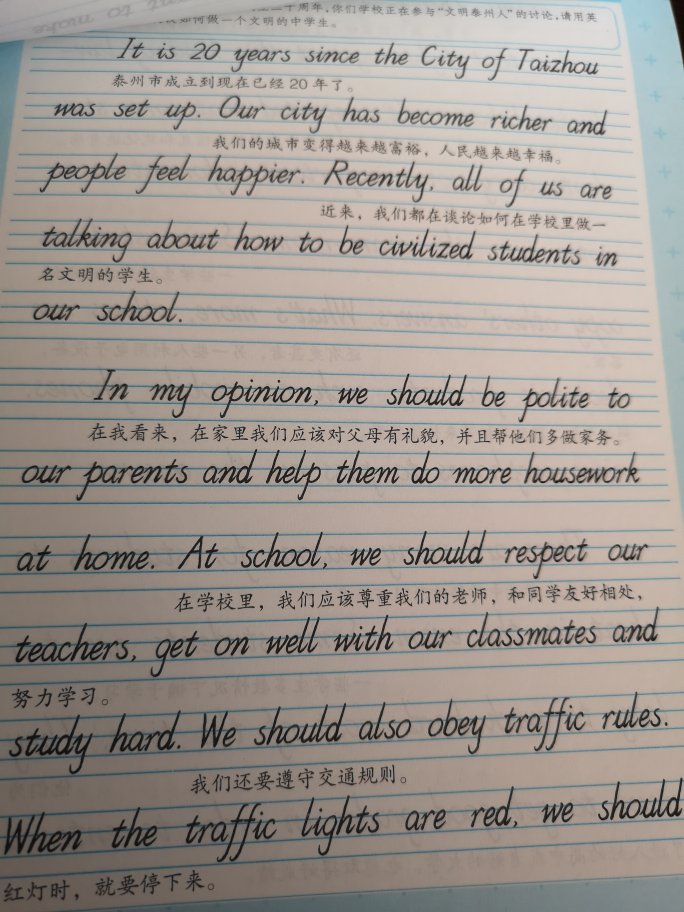 二十周年,你们学校正在参与“文明泰州人”的讨论,请用英
如何做一个文明的中学生。
It is 20 years since the City of Taizhou
泰州市成立到现在已经 20 年了。
was set up. Our city has become richer and
我们的城市变得越来越富裕,人民越来越幸福。
people feel happier. Recently, all of us are
近来,我们都在谈论如何在学校里做一
talking about how to be civilized students in
名文明的学生。
our school.
In my opinion, we should be polite to
在我看来,在家里我们应该对父母有礼貌,并且帮他们多做家务。
our parents and help them do more housework
at home. At school, we should respect our
在学校里,我们应该尊重我们的老师,和同学友好相处,
teachers, get on well with our classmates and
努力学习。
study hard. We should also obey traffic rules.
我们还要遵守交通规则。
When the traffic lights are red, we should
红灯时,就要停下来。